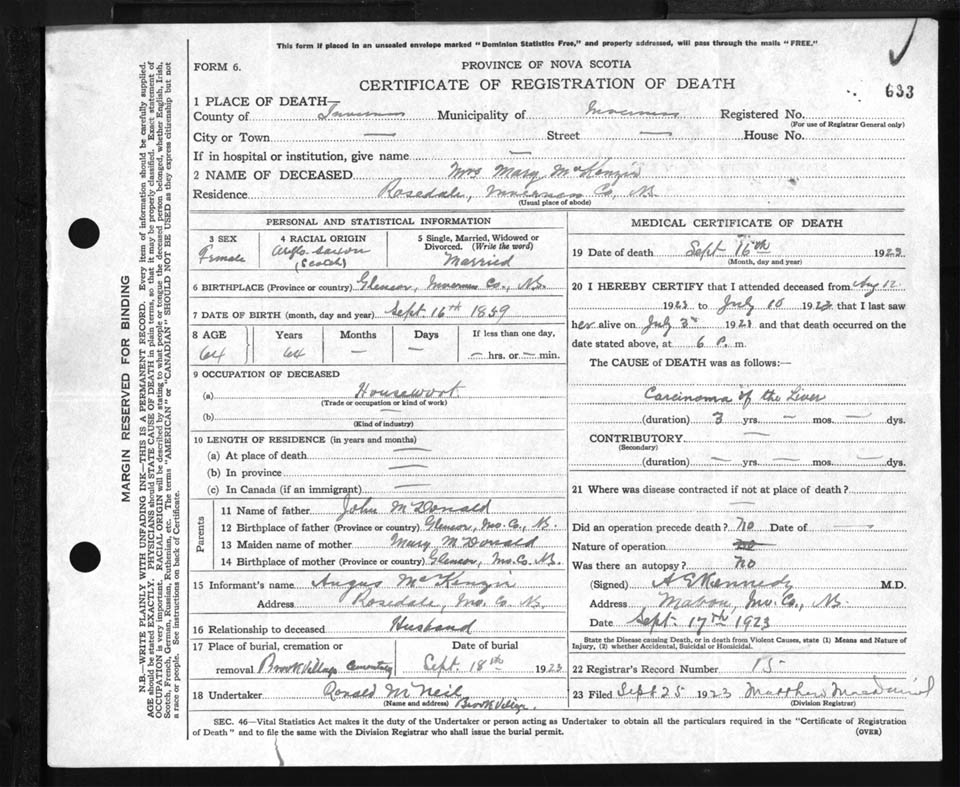 This form if placed in an unsealed envelope marked "Dominion Statistics Free," and properly addressed, will pass through the mails "FREE."
FORM 6.
PROVINCE OF NOVA SCOTIA
CERTIFICATE OF REGISTRATION OF DEATH
633
1 PLACE OF DEATH—
County of Inverness Municipality of Inverness Registered No.
(For use of Registrar General only)
City or Town — Street — House No.
If in hospital or institution, give name —
2 NAME OF DECEASED Mrs Mary McKenzie
Residence Rosedale, Inverness Co, N.S.
(Usual place of abode)
PERSONAL AND STATISTICAL INFORMATION
3 SEX
Female
4 RACIAL ORIGIN
Anglo Saxon
(Scotch)
5 Single, Married, Widowed or
Divorced. (Write the word)
Married
6 BIRTHPLACE (Province or country) Glencoe, Inverness Co., N.S.
7 DATE OF BIRTH (month, day and year) Sept. 16th 1859
8 AGE
64
Years
64
Months
—
Days
—
If less than one day,
— hrs. or — min.
9 OCCUPATION OF DECEASED
(a) Housework
(Trade or occupation or kind of work)
(b) —
(Kind of industry)
10 LENGTH OF RESIDENCE (in years and months)
(a) At place of death —
(b) In province —
(c) In Canada (if an immigrant) —
Parents
11 Name of father John McDonald
12 Birthplace of father (Province or country) Glencoe, Inv. Co., N.S.
13 Maiden name of mother Mary McDonald
14 Birthplace of mother (Province or country) Glencoe, Inv. Co. N.S.
15 Informant's name Angus McKenzie
Address Rosedale, Inv. Co. N.S.
16 Relationship to deceased Husband
17 Place of burial, cremation or
removal Brook Village Cemetery
Date of burial
Sept. 18th 1923
18 Undertaker Ronald McNeil
(Name and address) Brook Village.
MEDICAL CERTIFICATE OF DEATH
19 Date of death Sept 16th 1923
(Month, day and year)
20 I HEREBY CERTIFY that I attended deceased from Aug 12
1923 to July 1923 that I last saw
her alive on July 3rd 1923 and that death occurred on
date stated above, at 6 P. m.
The CAUSE of DEATH was as follows:—
Carcinoma of the Liver
(duration) 3 yrs. — mos. — dys.
CONTRIBUTORY —
(Secondary)
(duration) — yrs. — mos. — dys.
21 Where was disease contracted if not at place of death?
—
Did an operation precede death? No Date of —
Nature of operation
Was there an autopsy? No
(Signed) A E Kennedy M.D.
Address Mabou, Inv. Co., N.S.
Date Sept. 17th 1923
State the Disease causing Death, or in death from Violent Causes, state (1) Means and Nature of
Injury, (2) whether Accidental, Suicidal or Homicidal.
22 Registrar's Record Number 15
23 Filed Sept 25 1923 Matthew
(Division Registrar)
SEC. 46—Vital Statistics Act makes it the duty of the Undertaker or person acting as Undertaker to obtain all the particulars required in the "Certificate of Registration
of Death" and to file the same with the Division Registrar who shall issue the burial permit.
(OVER)
MARGIN RESERVED FOR BINDING
N.B.—WRITE PLAINLY WITH UNFADING INK—THIS IS A PERMANENT RECORD. Every item of information should be carefully supplied.
AGE should be stated EXACTLY. PHYSICIANS should STATE CAUSE OF DEATH in plain terms, so that it may be properly classified. Exact statement of
OCCUPATION is very important. RACIAL ORIGIN will be described by stating to what people or tongue the deceased person belonged, whether English, Irish,
Scotch, French, German, Russian, Ruthenian, etc. The terms "AMERICAN" or "CANADIAN" SHOULD NOT BE USED as they express citizenship but not
a race or people. See instructions on back of Certificate.